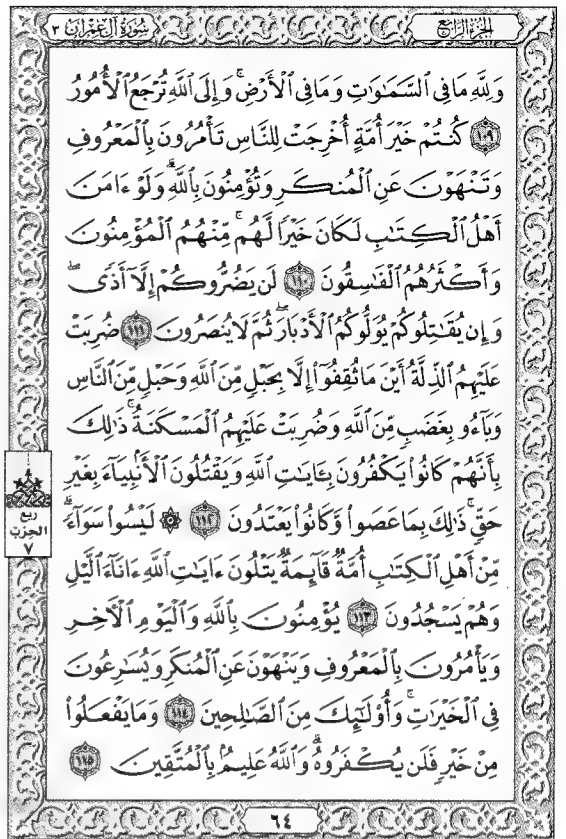 سُورَةُ آلِ عِمْرَانَ ٣
الجُزْءُ الرَّابِعُ
وَلِلَّهِ مَا فِي ٱلسَّمَٰوَٰتِ وَمَا فِي ٱلْأَرْضِۚ وَإِلَى ٱللَّهِ تُرْجَعُ ٱلْأُمُورُ
١٠٩ كُنتُمْ خَيْرَ أُمَّةٍ أُخْرِجَتْ لِلنَّاسِ تَأْمُرُونَ بِٱلْمَعْرُوفِ
وَتَنْهَوْنَ عَنِ ٱلْمُنكَرِ وَتُؤْمِنُونَ بِٱللَّهِۗ وَلَوْ ءَامَنَ
أَهْلُ ٱلْكِتَٰبِ لَكَانَ خَيْرًا لَّهُمۚ مِّنْهُمُ ٱلْمُؤْمِنُونَ
وَأَكْثَرُهُمُ ٱلْفَٰسِقُونَ ١١٠ لَن يَضُرُّوكُمْ إِلَّآ أَذًىۖ
وَإِن يُقَٰتِلُوكُمْ يُوَلُّوكُمُ ٱلْأَدْبَارَۖ ثُمَّ لَا يُنصَرُونَ ١١١ ضُرِبَتْ
عَلَيْهِمُ ٱلذِّلَّةُ أَيْنَ مَا ثُقِفُوٓا۟ إِلَّا بِحَبْلٍ مِّنَ ٱللَّهِ وَحَبْلٍ مِّنَ ٱلنَّاسِ
وَبَآءُو بِغَضَبٍ مِّنَ ٱللَّهِ وَضُرِبَتْ عَلَيْهِمُ ٱلْمَسْكَنَةُۚ ذَٰلِكَ
بِأَنَّهُمْ كَانُوا۟ يَكْفُرُونَ بِـَٔايَٰتِ ٱللَّهِ وَيَقْتُلُونَ ٱلْأَنۢبِيَآءَ بِغَيْرِ
حَقٍّۚ ذَٰلِكَ بِمَا عَصَوا۟ وَّكَانُوا۟ يَعْتَدُونَ ١١٢ ۞ لَيْسُوا۟ سَوَآءًۗ
مِّنْ أَهْلِ ٱلْكِتَٰبِ أُمَّةٌ قَآئِمَةٌ يَتْلُونَ ءَايَٰتِ ٱللَّهِ ءَانَآءَ ٱلَّيْلِ
وَهُمْ يَسْجُدُونَ ١١٣ يُؤْمِنُونَ بِٱللَّهِ وَٱلْيَوْمِ ٱلْأَخِرِ
وَيَأْمُرُونَ بِٱلْمَعْرُوفِ وَيَنْهَوْنَ عَنِ ٱلْمُنكَرِ وَيُسَٰرِعُونَ
فِي ٱلْخَيْرَٰتِۚ وَأُو۟لَٰٓئِكَ مِنَ ٱلصَّٰلِحِينَ ١١٤ وَمَا يَفْعَلُوا۟
مِنْ خَيْرٍ فَلَن يُكْفَرُوهُۗ وَٱللَّهُ عَلِيمٌۢ بِٱلْمُتَّقِينَ ١١٥
ربع
الحزب
٧
٦٤